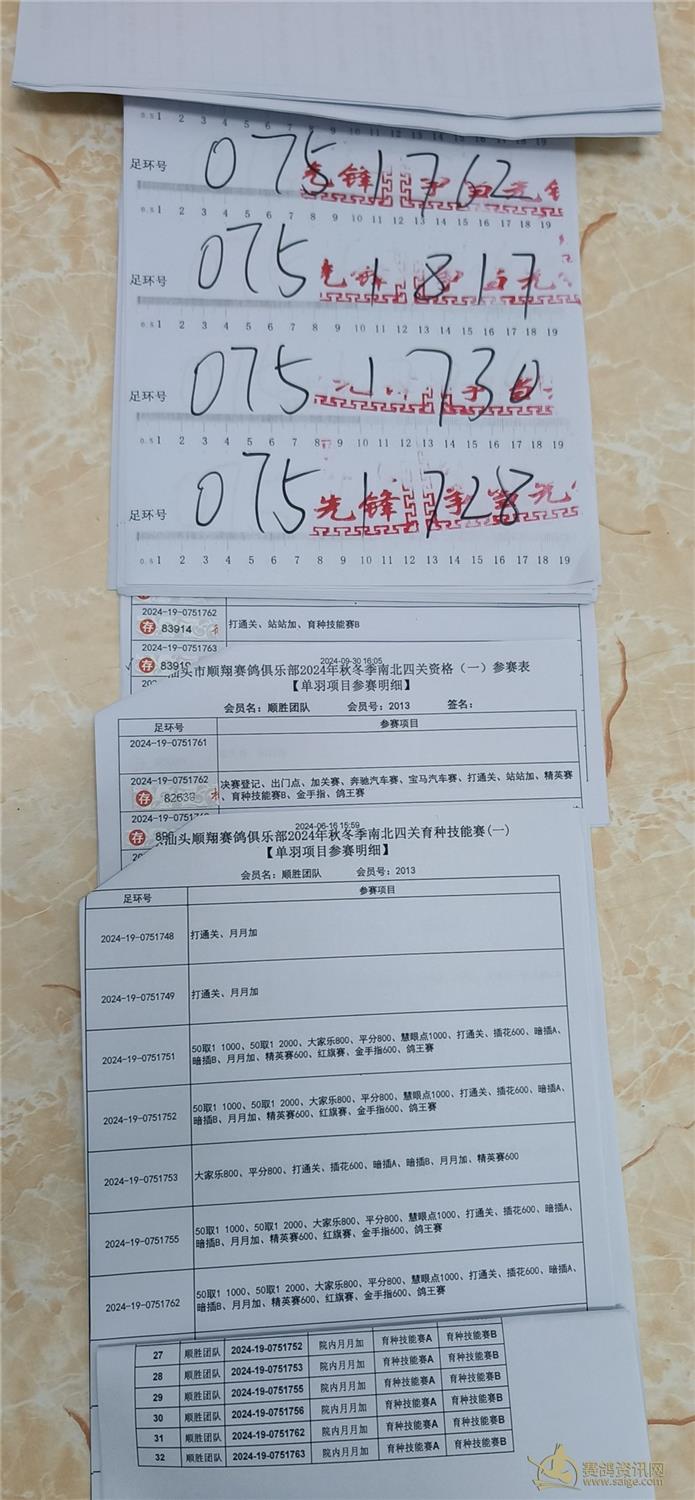 0.51 2 3 4 5 6 7 8 9 10 11 12 13 14 15 16 17 18 19
足环号 0751762
0.51 2 3 4 5 6 7 8 9 10 11 12 13 14 15 16 17 18 19
足环号 0751817
0.51 2 3 4 5 6 7 8 9 10 11 12 13 14 15 16 17 18 19
足环号 0751730
0.51 2 3 4 5 6 7 8 9 10 11 12 13 14 15 16 17 18 19
足环号 0751728
先锋
0.51 2 3 4 5 6 7 8 9 10 11 12 13 14 15 16 17 18 19
2024-19-0751762
存 83914 打通关、站站加、育种技能赛B
2024-19-0751763
存
2024-09-30 16:05
汕头市顺翔赛鸽俱乐部2024年秋冬季南北四关资格（一）参赛表
【单羽项目参赛明细】
会员名：顺胜团队 会员号：2013 签名：
足环号 参赛项目
2024-19-0751761
2024-19-0751762 决赛登记、出门点、加关赛、奔驰汽车赛、宝马汽车赛、打通关、站站加、精英赛
存 82639 、育种技能赛B、金手指、鸽王赛
存
2024-06-16 15:59
汕头顺翔赛鸽俱乐部2024年秋冬季南北四关育种技能赛(一)
【单羽项目参赛明细】
会员名：顺胜团队 会员号：2013
足环号 参赛项目
2024-19-0751748 打通关、月月加
2024-19-0751749 打通关、月月加
2024-19-0751751 50取1 1000、50取1 2000、大家乐800、平分800、慧眼点1000、打通关、插花600、暗插A、
暗插B、月月加、精英赛600、红旗赛、金手指600、鸽王赛
2024-19-0751752 50取1 1000、50取1 2000、大家乐800、平分800、慧眼点1000、打通关、插花600、暗插A、
暗插B、月月加、精英赛600、红旗赛、金手指600、鸽王赛
2024-19-0751753 大家乐800、平分800、打通关、插花600、暗插A、暗插B、月月加、精英赛600
2024-19-0751755 50取1 1000、50取1 2000、大家乐800、平分800、慧眼点1000、打通关、插花600、暗插A、
暗插B、月月加、精英赛600、红旗赛、金手指600、鸽王赛
2024-19-0751762 50取1 1000、50取1 2000、大家乐800、平分800、慧眼点1000、打通关、插花600、暗插A、
暗插B、月月加、精英赛600、红旗赛、金手指600、鸽王赛
27 顺胜团队 2024-19-0751752 院内月月加 育种技能赛A 育种技能赛B
28 顺胜团队 2024-19-0751753 院内月月加 育种技能赛A 育种技能赛B
29 顺胜团队 2024-19-0751755 院内月月加 育种技能赛A 育种技能赛B
30 顺胜团队 2024-19-0751756 院内月月加 育种技能赛A 育种技能赛B
31 顺胜团队 2024-19-0751762 院内月月加 育种技能赛A 育种技能赛B
32 顺胜团队 2024-19-0751763 院内月月加 育种技能赛A 育种技能赛B
赛鸽资讯网
www.saige.com